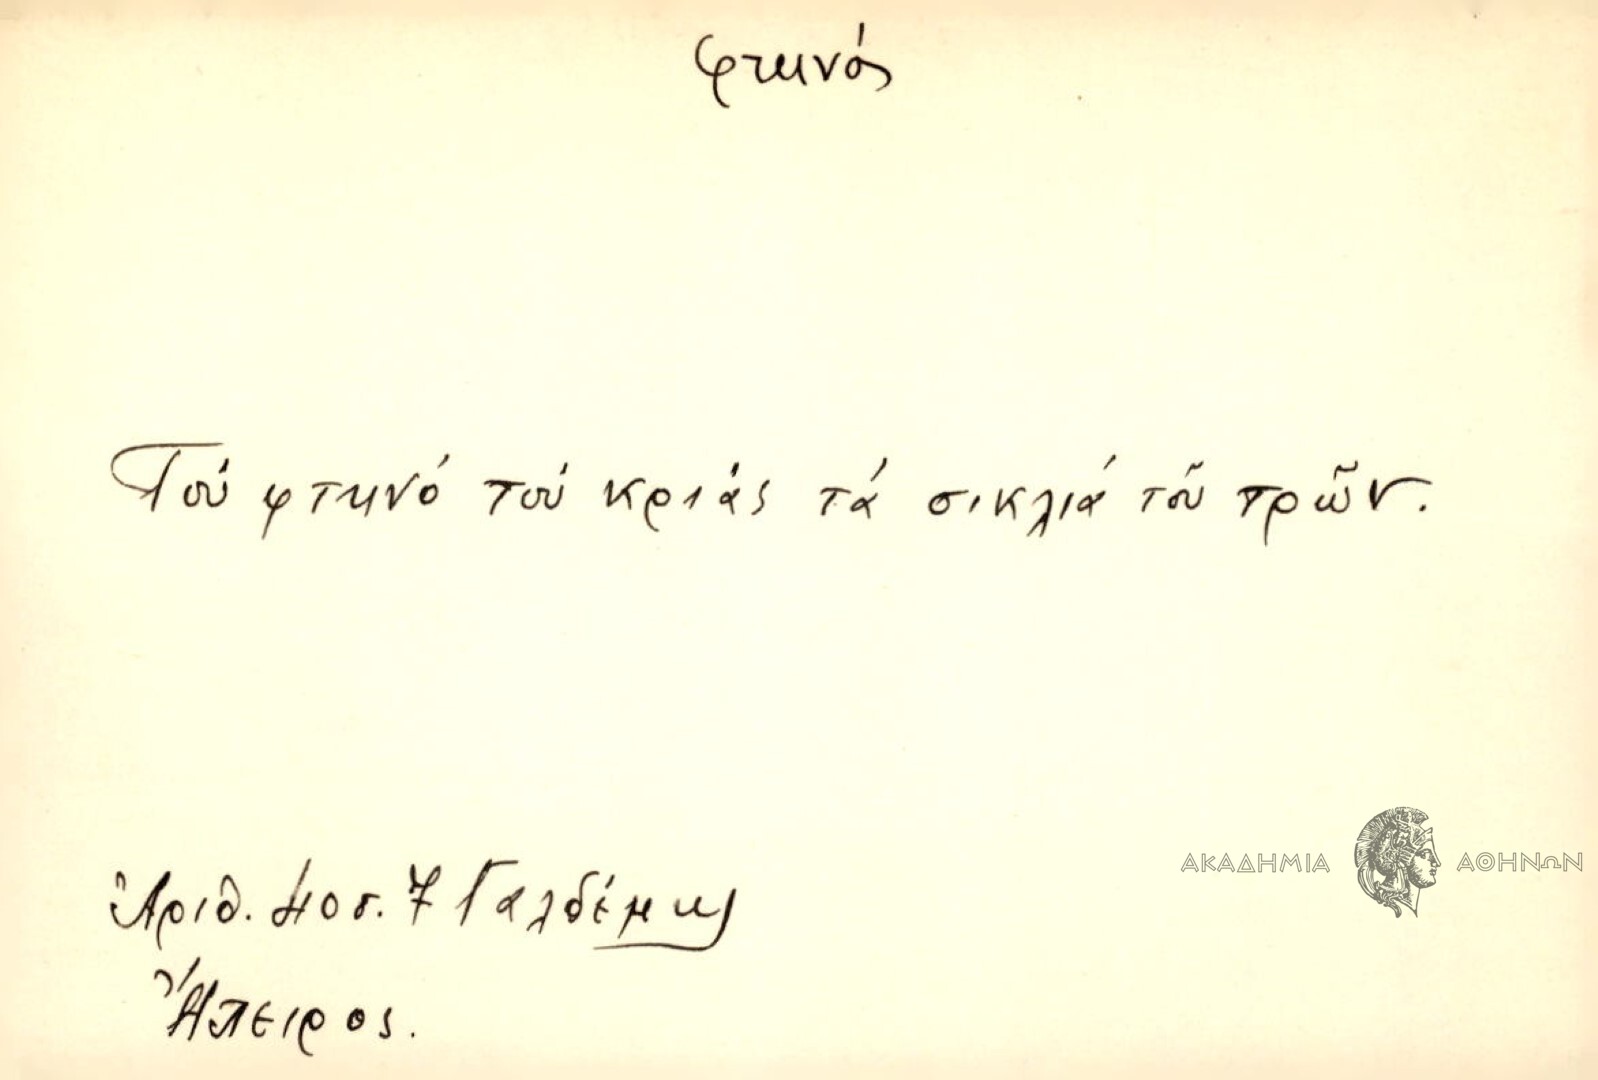 φτηνός
Τού φτηνό τού κριάς τά σικλιά τοῦ τρῶν.
Ἀριθ. Ποσ. 7 Γαλδέμης
Ἤπειρος.
ΑΚΑΔΗΜΙΑ ΑΘΗΝΩΝ